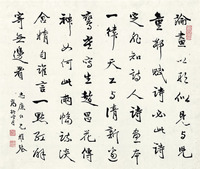 論畫以形似見與兒
童鄰賦詩必此詩
定非知詩人詩畫本
一律天工與清新邊
鸞雀寫生趙昌花傳
神如何此兩幅疎澹
含精勻誰言一點紅解
寄無邊春